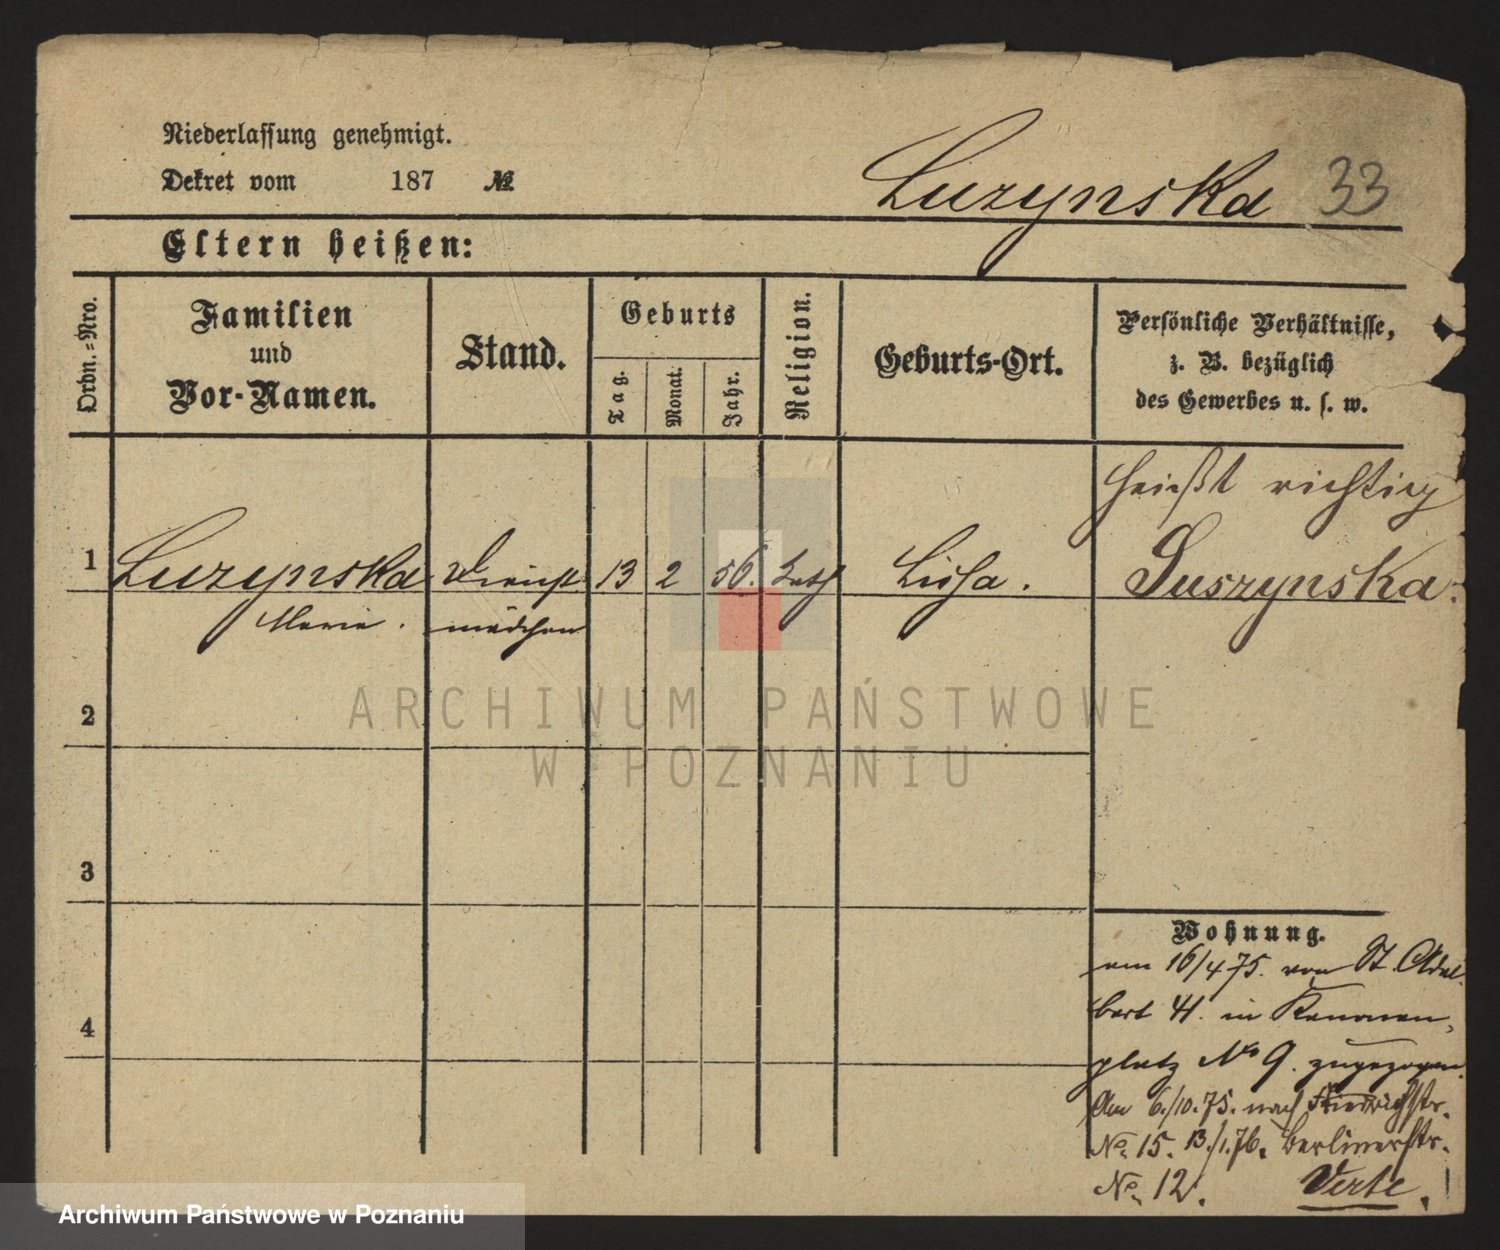 Niederlassung genehmigt.
Dekret vom 187 №
Luzynska 33
Eltern heißen:
Ordn.-Nro.
Familien
und
Vor-Namen.
Stand.
Geburts
Tag.
Monat.
Jahr.
Religion.
Geburts-Ort.
Persönliche Verhältnisse,
z. B. bezüglich
des Gewerbes u. s. w.
heißt richtig
1 Luzynska Dienst 13 2 56. kath Lissa. Luszynska.
Marie. mädchen
2
ARCHIWUM PAŃSTWOWE
W POZNANIU
3
Wohnung.
am 16/4 75. von St. Adal
bert 41. in Kanonen,
4
platz No 9. zugezogen.
Am 6./10. 75. nach Friedrichstr.
No. 15. 13./1. 76. Berlinerstr.
No. 12. Verte.
Archiwum Państwowe w Poznaniu